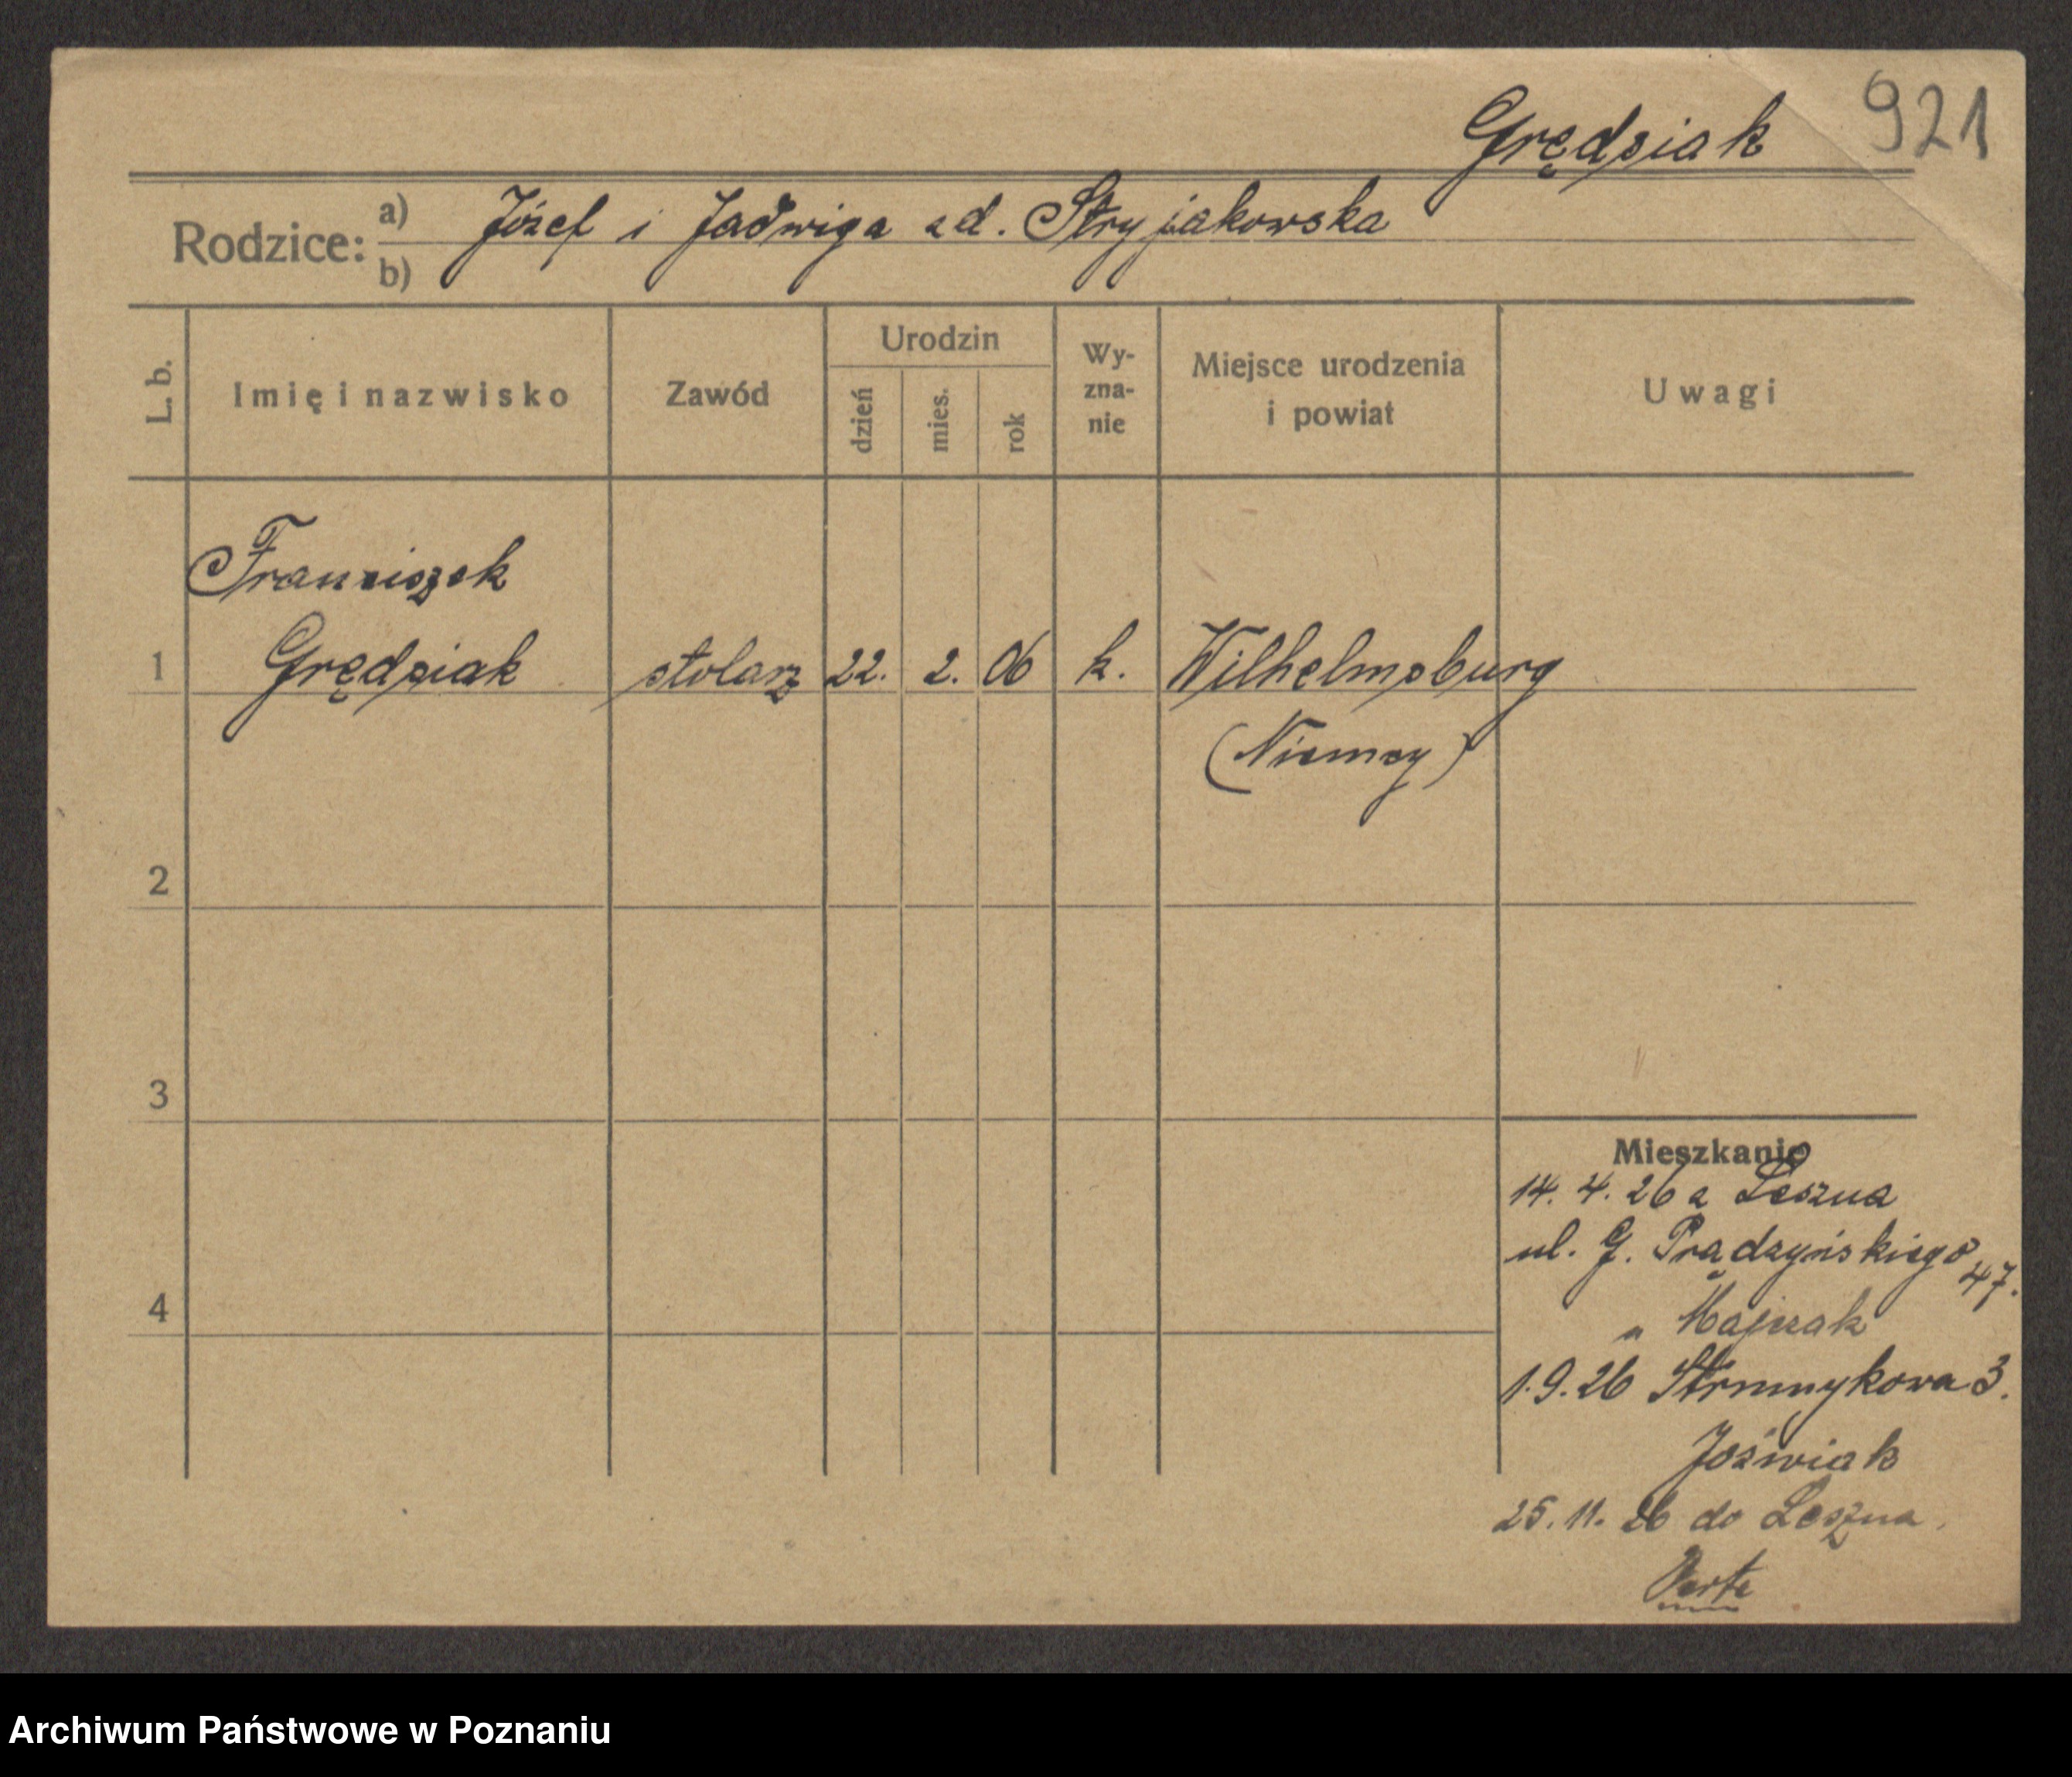 921
Grędziak
Rodzice: a) Józef i Jadwiga zd. Stryjakowska
b)
L. b.
Imię i nazwisko
Zawód
Urodzin
dzień
mies.
rok
Wy-
zna-
nie
Miejsce urodzenia
i powiat
Uwagi
Franciszek
1 Grędziak stolarz 22. 2. 06 k. Wilhelmsburg
(Niemcy)
2
3
4
Mieszkanie
14. 4. 26 z Leszna
ul. G. Prądzyńskiego 47.
" Majczak
1.9.26 Strumykowa 3.
Joźwiak
25. 11. 26 do Leszna.
Verte
Archiwum Państwowe w Poznaniu